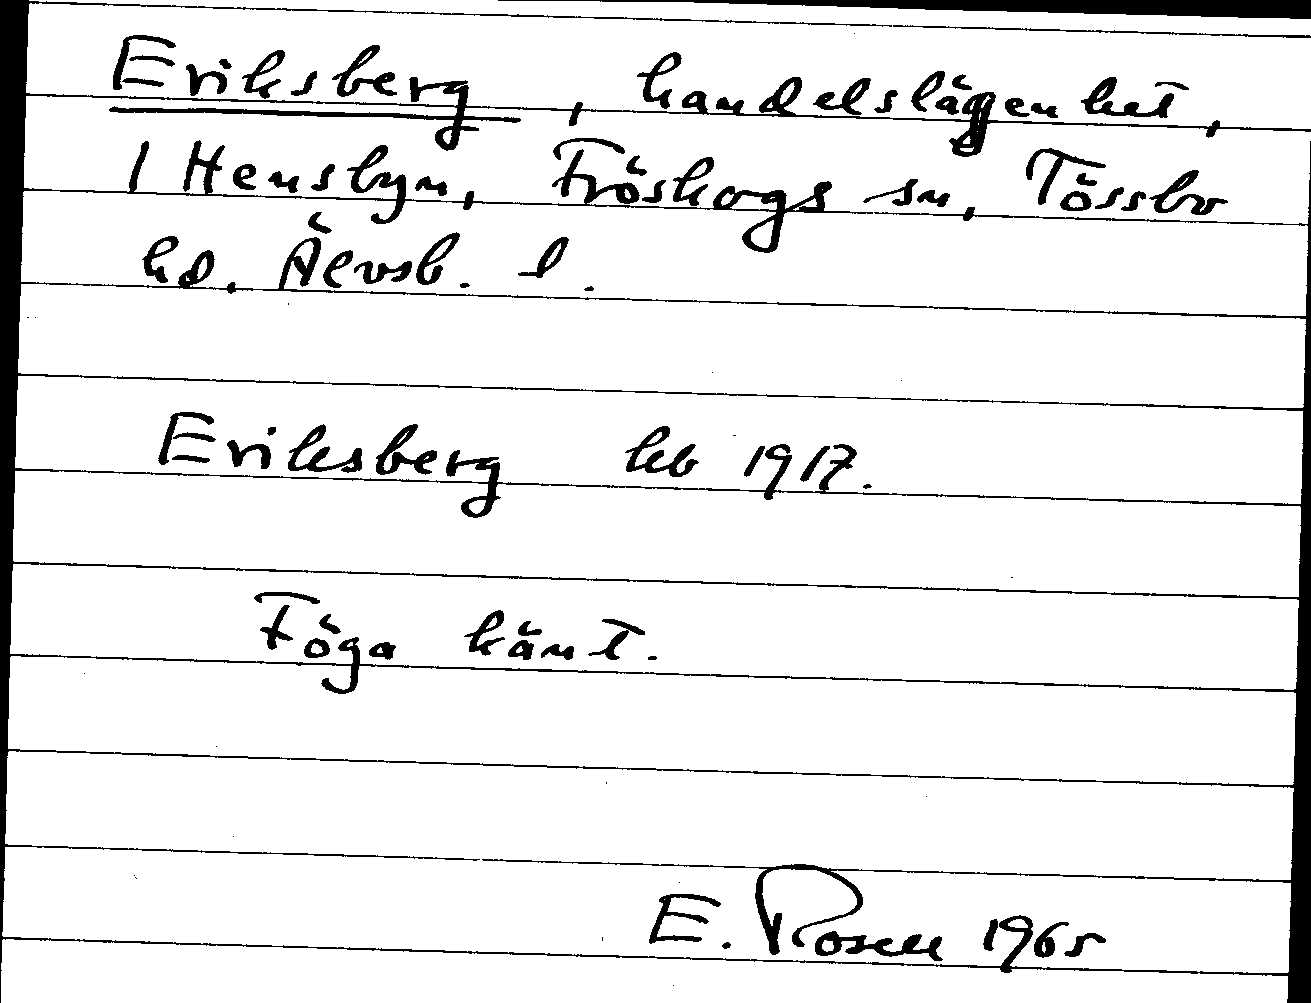 Eriksberg, handelslägenhet,
1 Hensbyn, Fröskogs sn, Tössbo
hd. Älvsb. l.
Eriksberg hb 1917.
Föga känt.
E. Rosell 1965